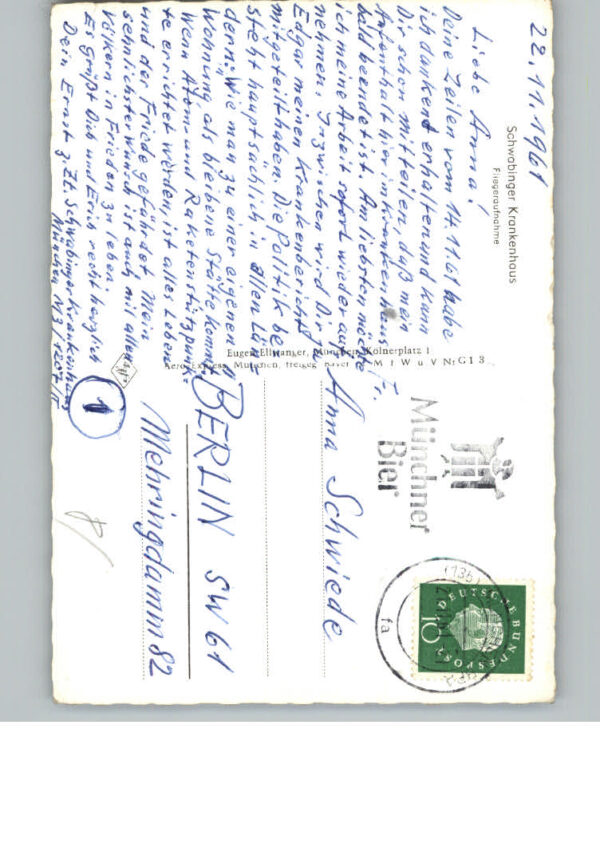 22.11.1961
Schwabinger Krankenhaus
Fliegeraufnahme
Liebe Anna!
Deine Zeilen vom 14.11.61 habe
ich dankend erhalten und kann
Dir schon mitteilen, daß mein
Aufenthalt hier im Krankenhaus
bald beendet ist. Am liebsten möchte
ich meine Arbeit sofort wieder auf-
nehmen. Inzwischen wird Dir Fr.
Edgar meinen Krankenbericht
mitgeteilt haben. Die Politik be-
steht hauptsächlich in allen Län-
dern: "Wie man zu einer eigenen
Wohnung als bleibene Stätte kommt."
Wenn Atom- und Raketenstützpunk-
te errichtet werden, ist alles Leben
und der Friede gefährdet. Mein
sehnlichster Wunsch ist auch mit allen
Völkern in Frieden zu leben.
Es grüßt Dich und Erich recht herzlich
Dein Ernst z. Zt. Schwabinger Krankenhaus
München
1
Eugen Ellwanger, München, Kölnerplatz 1
Aero-Express München, freigeg. Bayer. St M f W u V Nr. G 1 3
Münchner
Bier
DEUTSCHE BUNDESPOST
10
(13b)
fa
Anna Schwiede
BERLIN SW 61
Mehringdamm 82